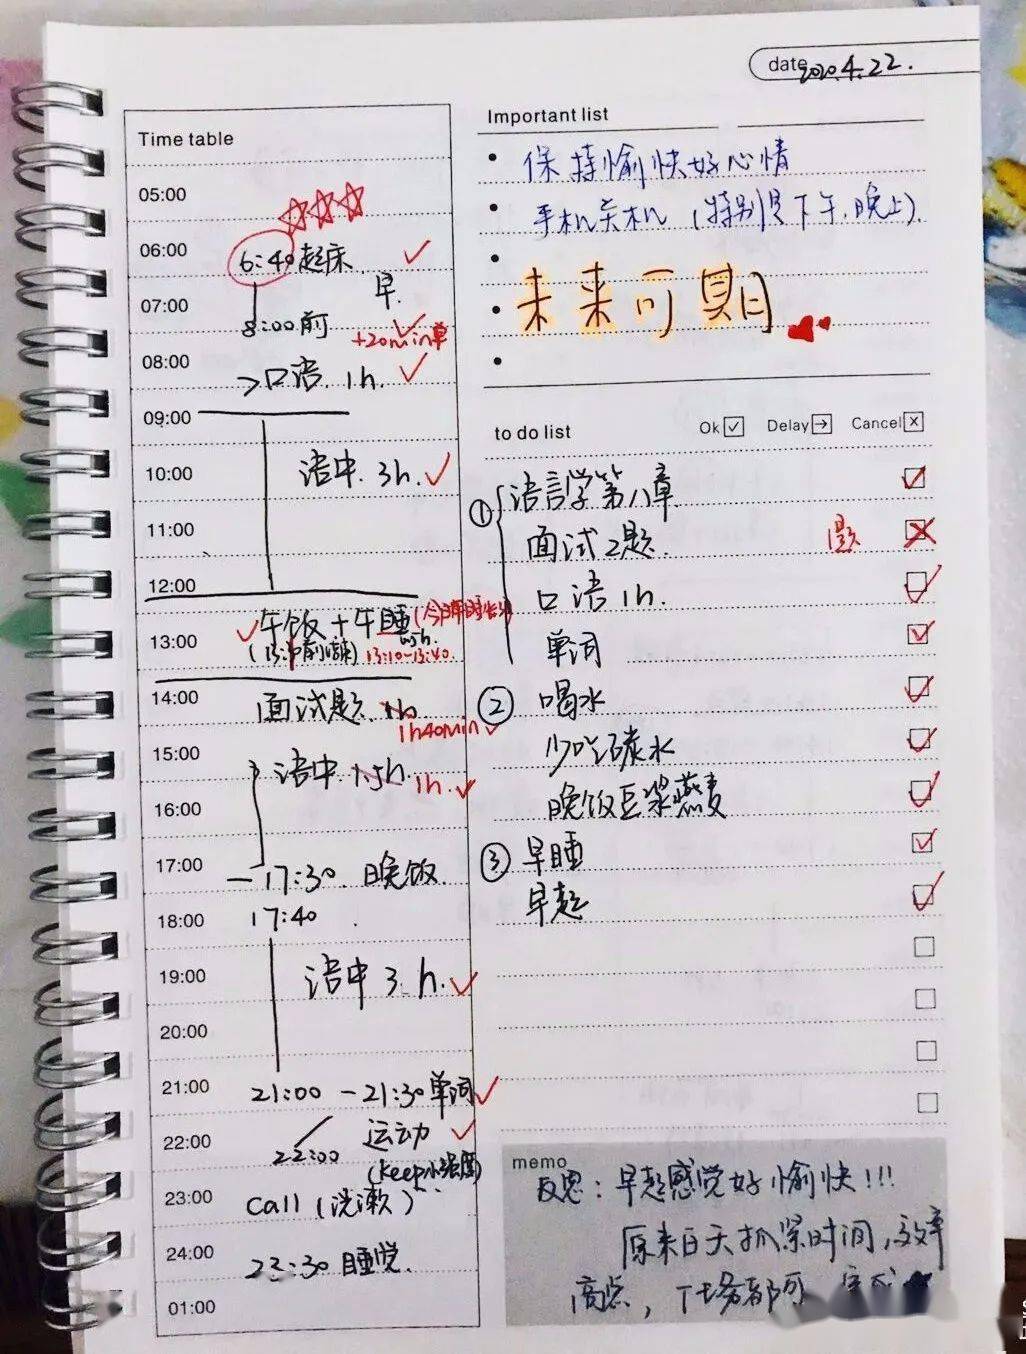 date 2020.4.22.
Time table
05:00
06:00
6:40起床
早.
07:00
8:00前
+20min单
08:00
>口语. 1h.
09:00
10:00
语中. 3h.
11:00
12:00
13:00
午饭+午睡
13:10-13:40
14:00
面试题. 1h
1h40min
15:00
语中 1.5h. 1h.
16:00
17:00
—17:30. 晚饭.
18:00
17:40
19:00
语中 3. h.
20:00
21:00
21:00 —21:30单词
22:00
运动
22:00
23:00
Call (洗漱)
24:00
睡觉.
01:00
Important list
保持愉快好心情
手机关机 (特别是下午.晚上).
未来可期
to do list
Ok Delay Cancel
① 语言学第八章
面试2题. 1题
口语1h.
单词
② 喝水
少吃碳水
晚饭豆浆燕麦
③ 早睡
早起
memo
反思: 早起感觉好愉快!!!
原来白天抓紧时间,效率
高点,任务都可